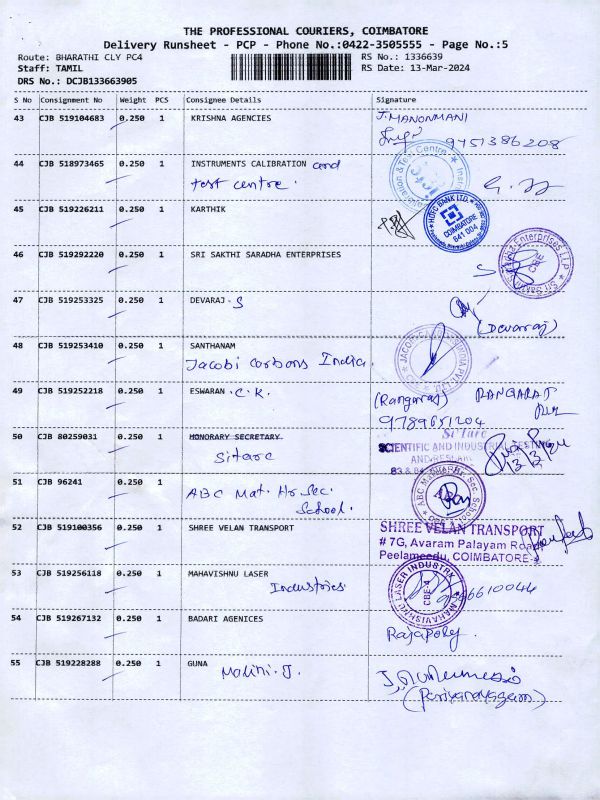 THE PROFESSIONAL COURIERS, COIMBATORE
Delivery Runsheet - PCP - Phone No.:0422-3505555 - Page No.:5
Route: BHARATHI CLY PC4
RS No.: 1336639
Staff: TAMIL
RS Date: 13-Mar-2024
DRS No.: DCJB133663905
S No Consignment No Weight PCS Consignee Details Signature
43 CJB 519104683 0.250 1 KRISHNA AGENCIES J.MANONMANI
9751386208
44 CJB 518973465 0.250 1 INSTRUMENTS CALIBRATION and
test centre.
& Test Centre
45 CJB 519226211 0.250 1 KARTHIK
HDFC BANK LTD.
COIMBATORE
641 004
46 CJB 519292220 0.250 1 SRI SAKTHI SARADHA ENTERPRISES
Enterprises LLP
47 CJB 519253325 0.250 1 DEVARAJ-S
(Devaraj)
48 CJB 519253410 0.250 1 SANTHANAM
Jacobi Carbons India.
49 CJB 519252218 0.250 1 ESWARAN.C.K. (Rangaraj) RANGARAJ
9789651204
50 CJB 80259031 0.250 1 HONORARY SECRETARY.
Sitarc
Si'Tarc
SCIENTIFIC AND INDUSTRIAL TESTING
AND RESEARCH
51 CJB 96241 0.250 1 ABC Mat. Hr Sec.
School.
52 CJB 519100356 0.250 1 SHREE VELAN TRANSPORT SHREE VELAN TRANSPORT
# 7G, Avaram Palayam Road
Peelameedu, COIMBATORE
53 CJB 519256118 0.250 1 MAHAVISHNU LASER
Industries
MAHAVISHNU LASER INDUSTRY
CBE-4
54 CJB 519267132 0.250 1 BADARI AGENICES
Rajapoly.
55 CJB 519228288 0.250 1 GUNA
Malini.J.
(Periyanayagam)